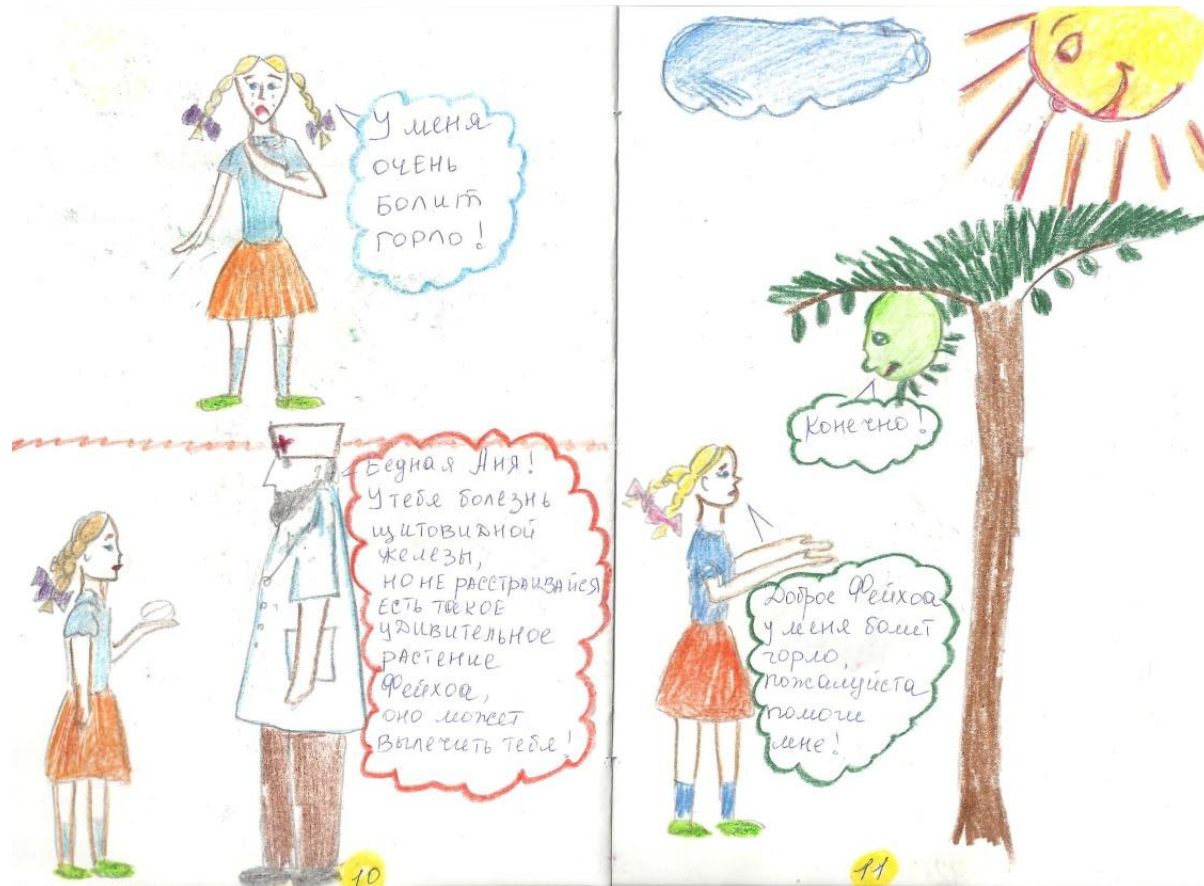 У меня
ОЧЕНЬ
БОЛИТ
ГОРЛО!
Бедная Аня!
У тебя болезнь
щитовидной
железы,
НО НЕ РАССТРАИВАЙСЯ
ЕСТЬ ТАКОЕ
УДИВИТЕЛЬНОЕ
РАСТЕНИЕ
Фейхоа,
оно может
Вылечить тебя!
10
Конечно!
Доброе Фейхоа
у меня болит
горло,
пожалуйста
помоги
мне!
11